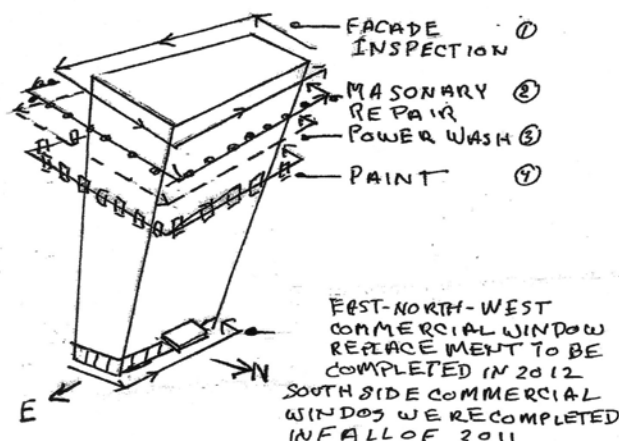 FACADE ①
INSPECTION
MASONARY ②
REPAIR
POWER WASH ③
PAINT ④
EAST-NORTH-WEST
COMMERCIAL WINDOW
REPLACEMENT TO BE
COMPLETED IN 2012
SOUTH SIDE COMMERCIAL
WINDOS WERE COMPLETED
IN FALL OF 2011
N
E